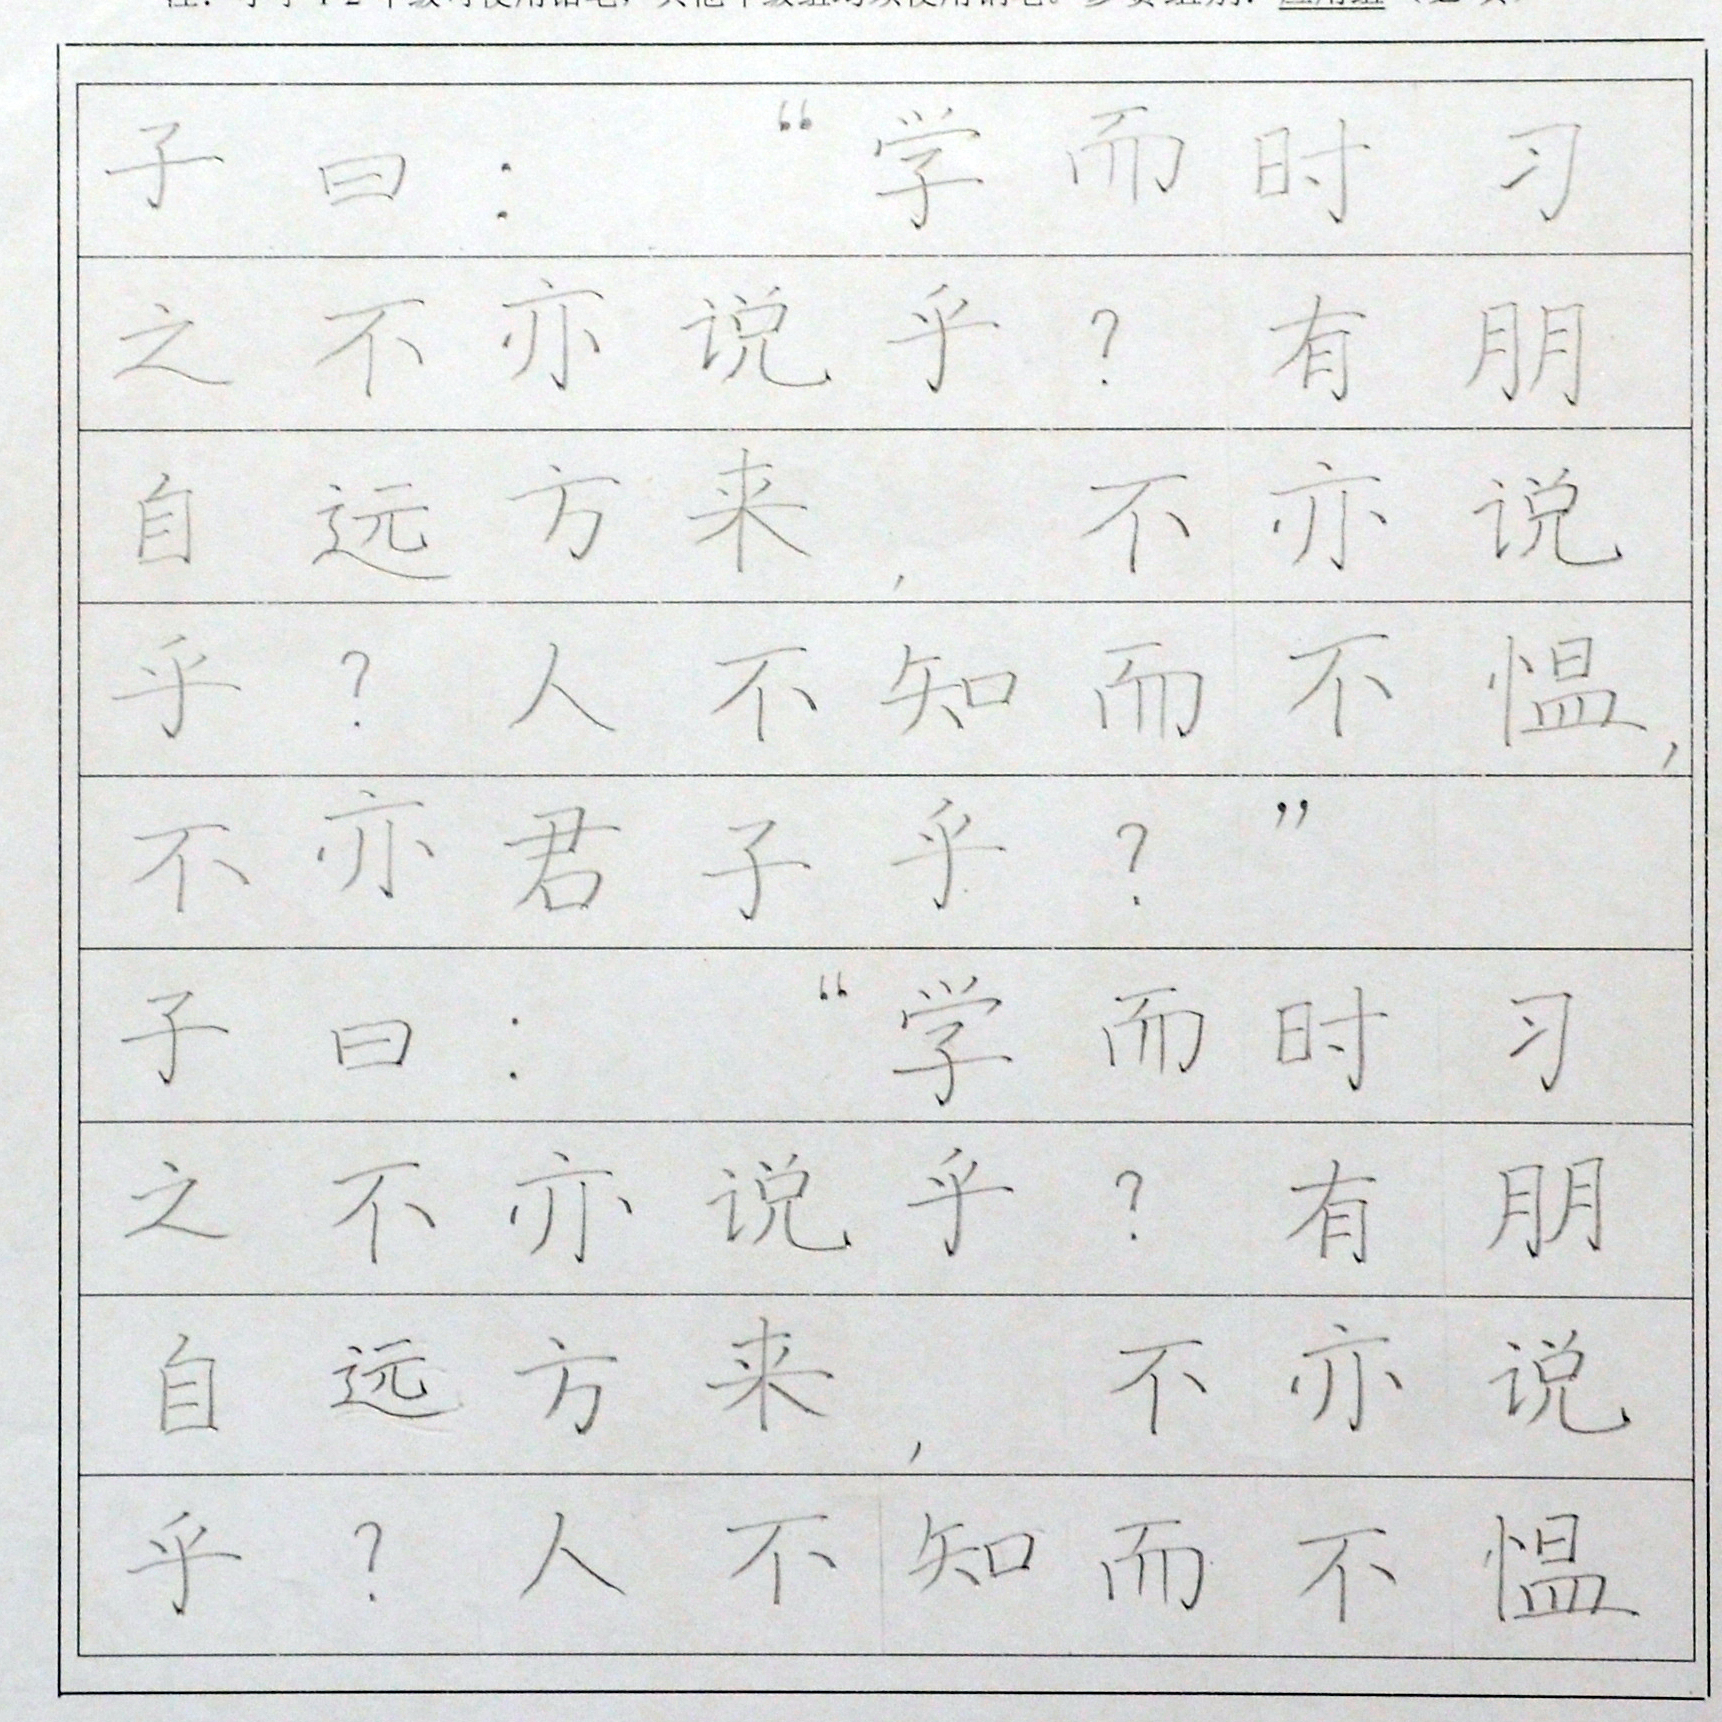 子曰：“学而时习
之不亦说乎？有朋
自远方来，不亦说
乎？人不知而不愠，
不亦君子乎？”
子曰：“学而时习
之不亦说乎？有朋
自远方来，不亦说
乎？人不知而不愠